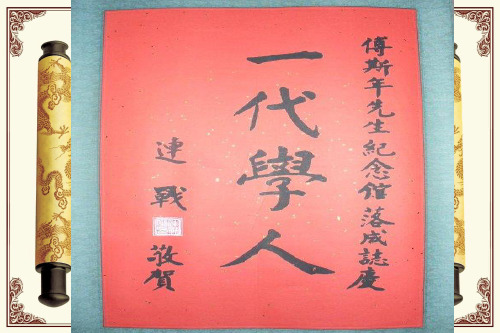 傅斯年先生紀念館落成誌慶
一代學人
連戰
敬賀